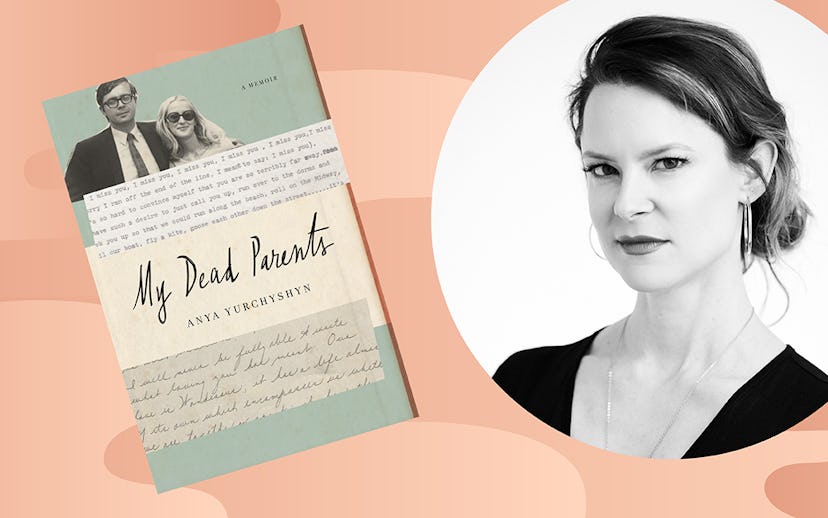 A MEMOIR
I miss you, I miss you, I miss you, I miss you, I miss you, I miss
I ran off the end of the line. I meant to say: I miss you).
so hard to convince myself that you are so terribly far away.
have such a desire to just call you up, run over to the dorms and
you up so that we could run along the beach, roll on the Midway,
our boat, fly a kite, goose each other down the street
My Dead Parents
ANYA YURCHYSHYN
I will never be fully able to write
what loving you has meant. Our
love is Wonderous; it has a life almost
of its own which encompasses us while
we are